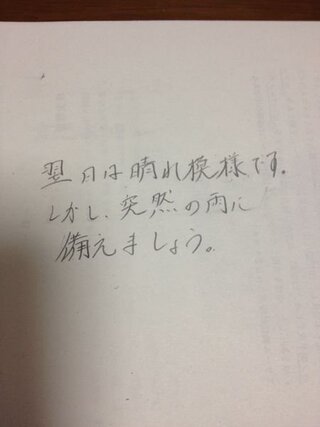 翌日は晴れ模様です。
しかし、突然の雨に
備えましょう。